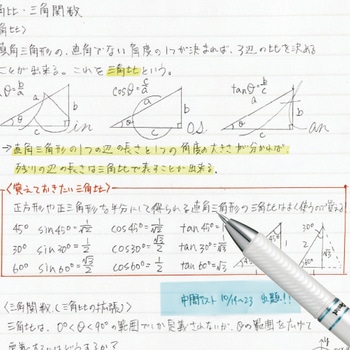 角比・三角関数
角比〉
直角三角形の、直角でない角度の1つが決まれば、3辺の比を決める
ことが出来る。これを三角比という。
θ=b/a cosθ=c/a tanθ=b/c
a b θ c in a b θ c os a b θ c an
→直角三角形の1つの辺の長さと1つの角度の大きさが分かれば、
残りの辺の長さは三角比で表すことが出来る。
〈覚えておきたい三角比〉
正方形や正三角形を半分にして得られる直角三角形の三角比はよく使うので覚える!
45° sin45°=1/√2 cos45°=1/√2 tan45°
30° sin30°=1/2 cos30°=√3/2 tan30°=
60° sin60°=√3/2 cos60°=1/2 tan60°=√3
中間テスト 10/19~23 出題!!
〈三角関数(三角比の拡張)〉
三角比は、0°<θ<90°の範囲でしか定義されないが、θの範囲を広げて